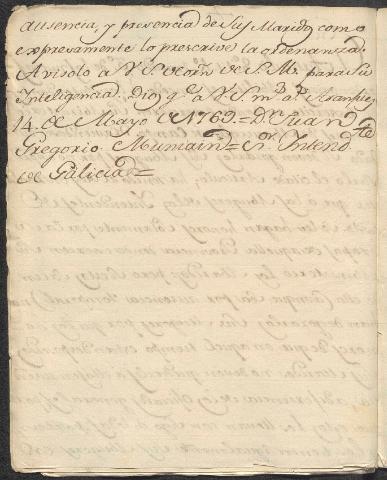 ausencia, y presencia de sus Maridos, como
expresamente lo prescrive la ordenanza.
Avisolo a V.S. de orn de S.M. para su
Inteligencia. Dios ge. a V.S. ms. as. Aranjuez
14. de Mayo de 1769.=Dn Juan
Gregorio Muniain= Sor. Intendte
de Galicia=